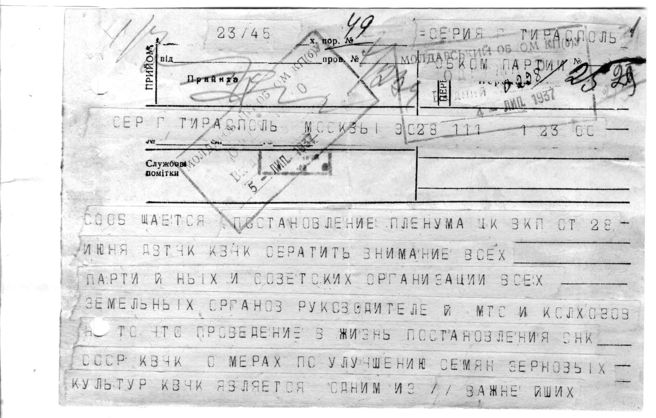 23/45 х. пор. № 49 =СЕРИЯ Г ТИРАСПОЛЬ
ПРИЙОМ
від пров. № ОБКОМ ПАРТИИ
МОЛДАВСЬКИЙ ОБ ОМ КП(б)У
Прийняв
4 - ЛИП. 1937
СЕР Г ТИРАСПОЛЬ МОСКВЫ 9028 111 1 23 00
№
5 - ЛИП. 1937
Службові
помітки
СООБ ЩАЕТСЯ ПОСТАНОВЛЕНИЕ ПЛЕНУМА ЦК ВКП ОТ 28
ИЮНЯ ДВТЧК КВЧК ОБРАТИТЬ ВНИМАНИЕ ВСЕХ
ПАРТИ Й НЫХ И СОВЕТСКИХ ОРГАНИЗАЦИИ ВСЕХ
ЗЕМЕЛЬНЫХ ОРГАНОВ РУКОВОДИТЕЛЕ Й МТС И КОЛХОЗОВ
НА ТО ЧТО ПРОВЕДЕНИЕ В ЖИЗНЬ ПОСТАНОВЛЕНИЯ СНК
СССР КВЧК О МЕРАХ ПО УЛУЧШЕНИЮ СЕМЯН ЗЕРНОВЫХ
КУЛЬТУР КВЧК ЯВЛЯЕТСЯ ОДНИМ ИЗ // ВАЖНЕ ЙШИХ